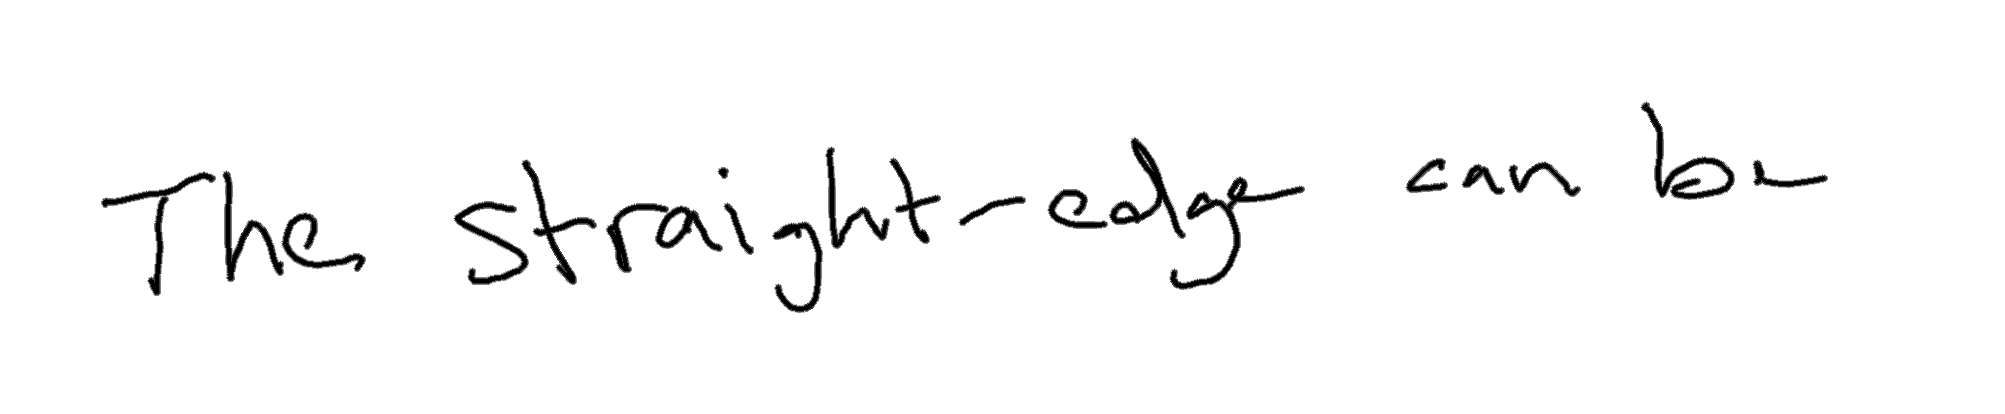 The straight-edge can be